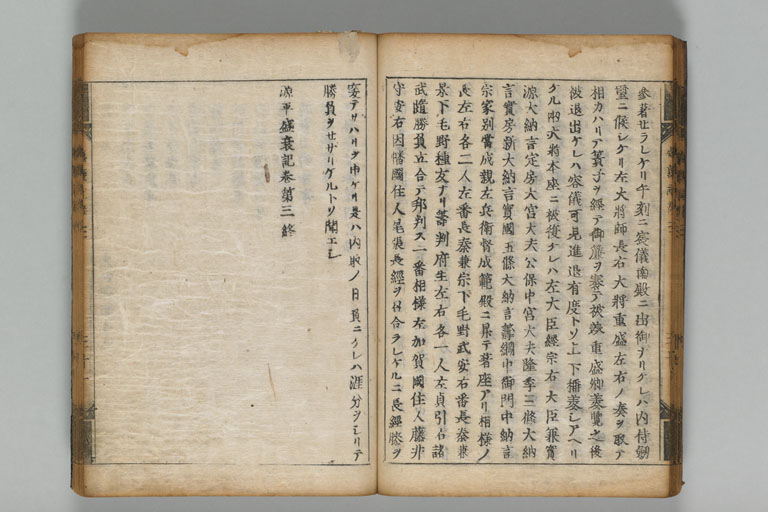 參著セラレケリ午刻ニ寔儀南殿ニ出御ナリケレハ内侍劔
璽ニ候シケリ左大將師長右大將重盛左右ノ奏ヲ取テ
相カハリテ簀子ヲ經テ御簾ヲ褰テ被竣重盛卿奏覽之後
被退出ケレハ容儀可見進退有度トソ上下播美シアヘリ
ケル兩大將本座ニ被復ケレハ左大臣經宗右大臣兼實
源大納言定房大宮大夫公保中宮大夫隆季三條大納
言實房新大納言實國五條大納言邦綱中御門中納言
宗家別當成親左兵衛督成範殿ニ昇テ著座アリ相撲ノ
長左右各二人左番長秦兼宗下毛野武安右番長秦兼
景下毛野種友ナリ籌判府生左右各一人左貞引右諸
武踏勝負立合テ勅判ス一番相撲左加賀國住人藤井
守安右因幡國住人尾張長經ヲ召合ラレケルニ長經勝ヲ
奏テサハリヲ申ケリ是ハ内取ノ日負ニケレハ涯分ヲミリテ
勝負ヲセサリケルトソ聞エシ
源平盛衰記卷第三終